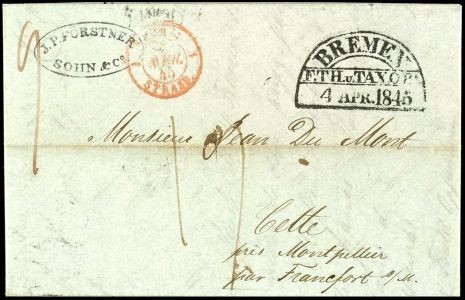 J.P. FORSTNER
SOHN & Co.
BREMEN
F. TH. u. TAX.
4 APR. 1845
Monsieur Jean Du Mont
Cette
près Montpellier
par Francfort s/M.